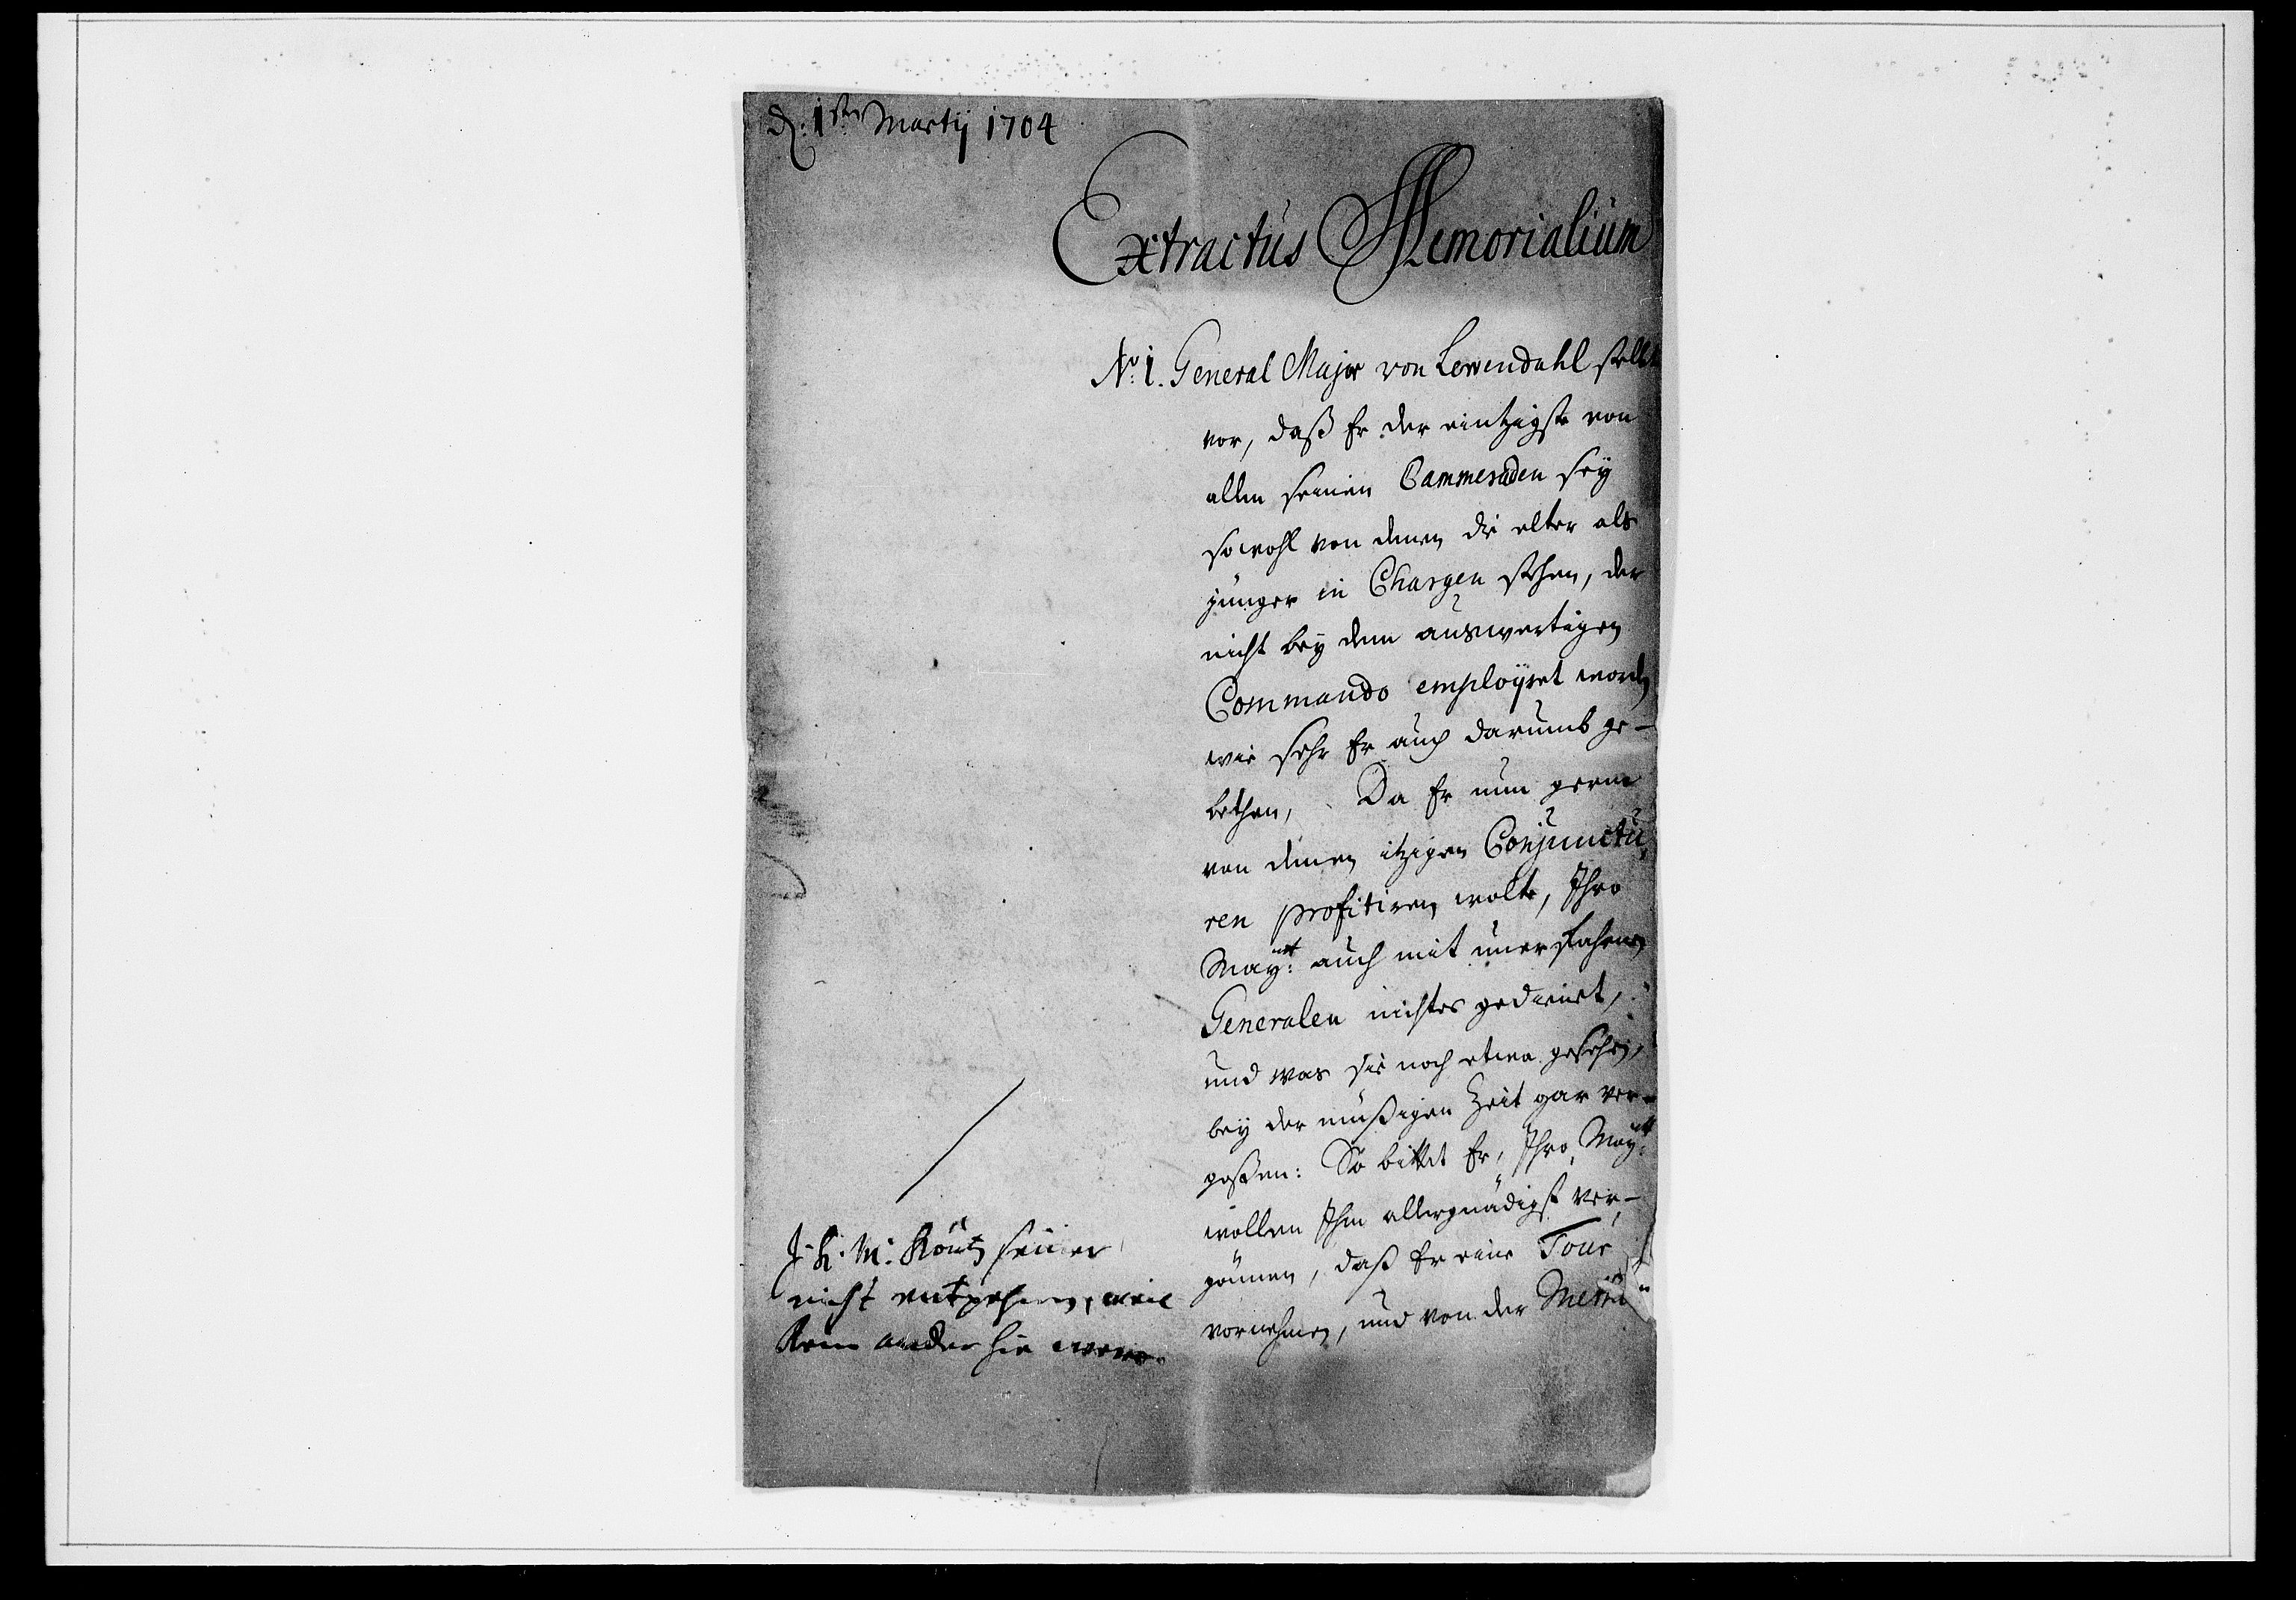 d. 1sten Martij 1704
Extractus Memorialium
No: 1. General Major von Lewendahl stellt
vor, daß Er der eintzigste von
allen seinen Cammeraden seÿ
sowohl von denen die elter als
jünger in Chargen stehen, der
nicht beÿ dem auswertigen
Commando emploÿret worden
wie sehr Er auch darumb ge-
bethen, Da Er nun gerne
von denen itzigen Conjunctu,
ren profitiren wolte, Ihro
Maÿtt: auch mit unerfahrnen
Generalen nichtes gedienet,
und was sie noch etwa gesehen,
beÿ der müßigen Zeit gar ver-
geßen: So bittet Er, Ihro Maÿtt:
wollen Ihm allergnädigst ver-
gönnen, daß Er eine Tour
vornehmen, und von der
J. K. M: Könten seiner
nicht entgehren, weil
Kein ander hie were.